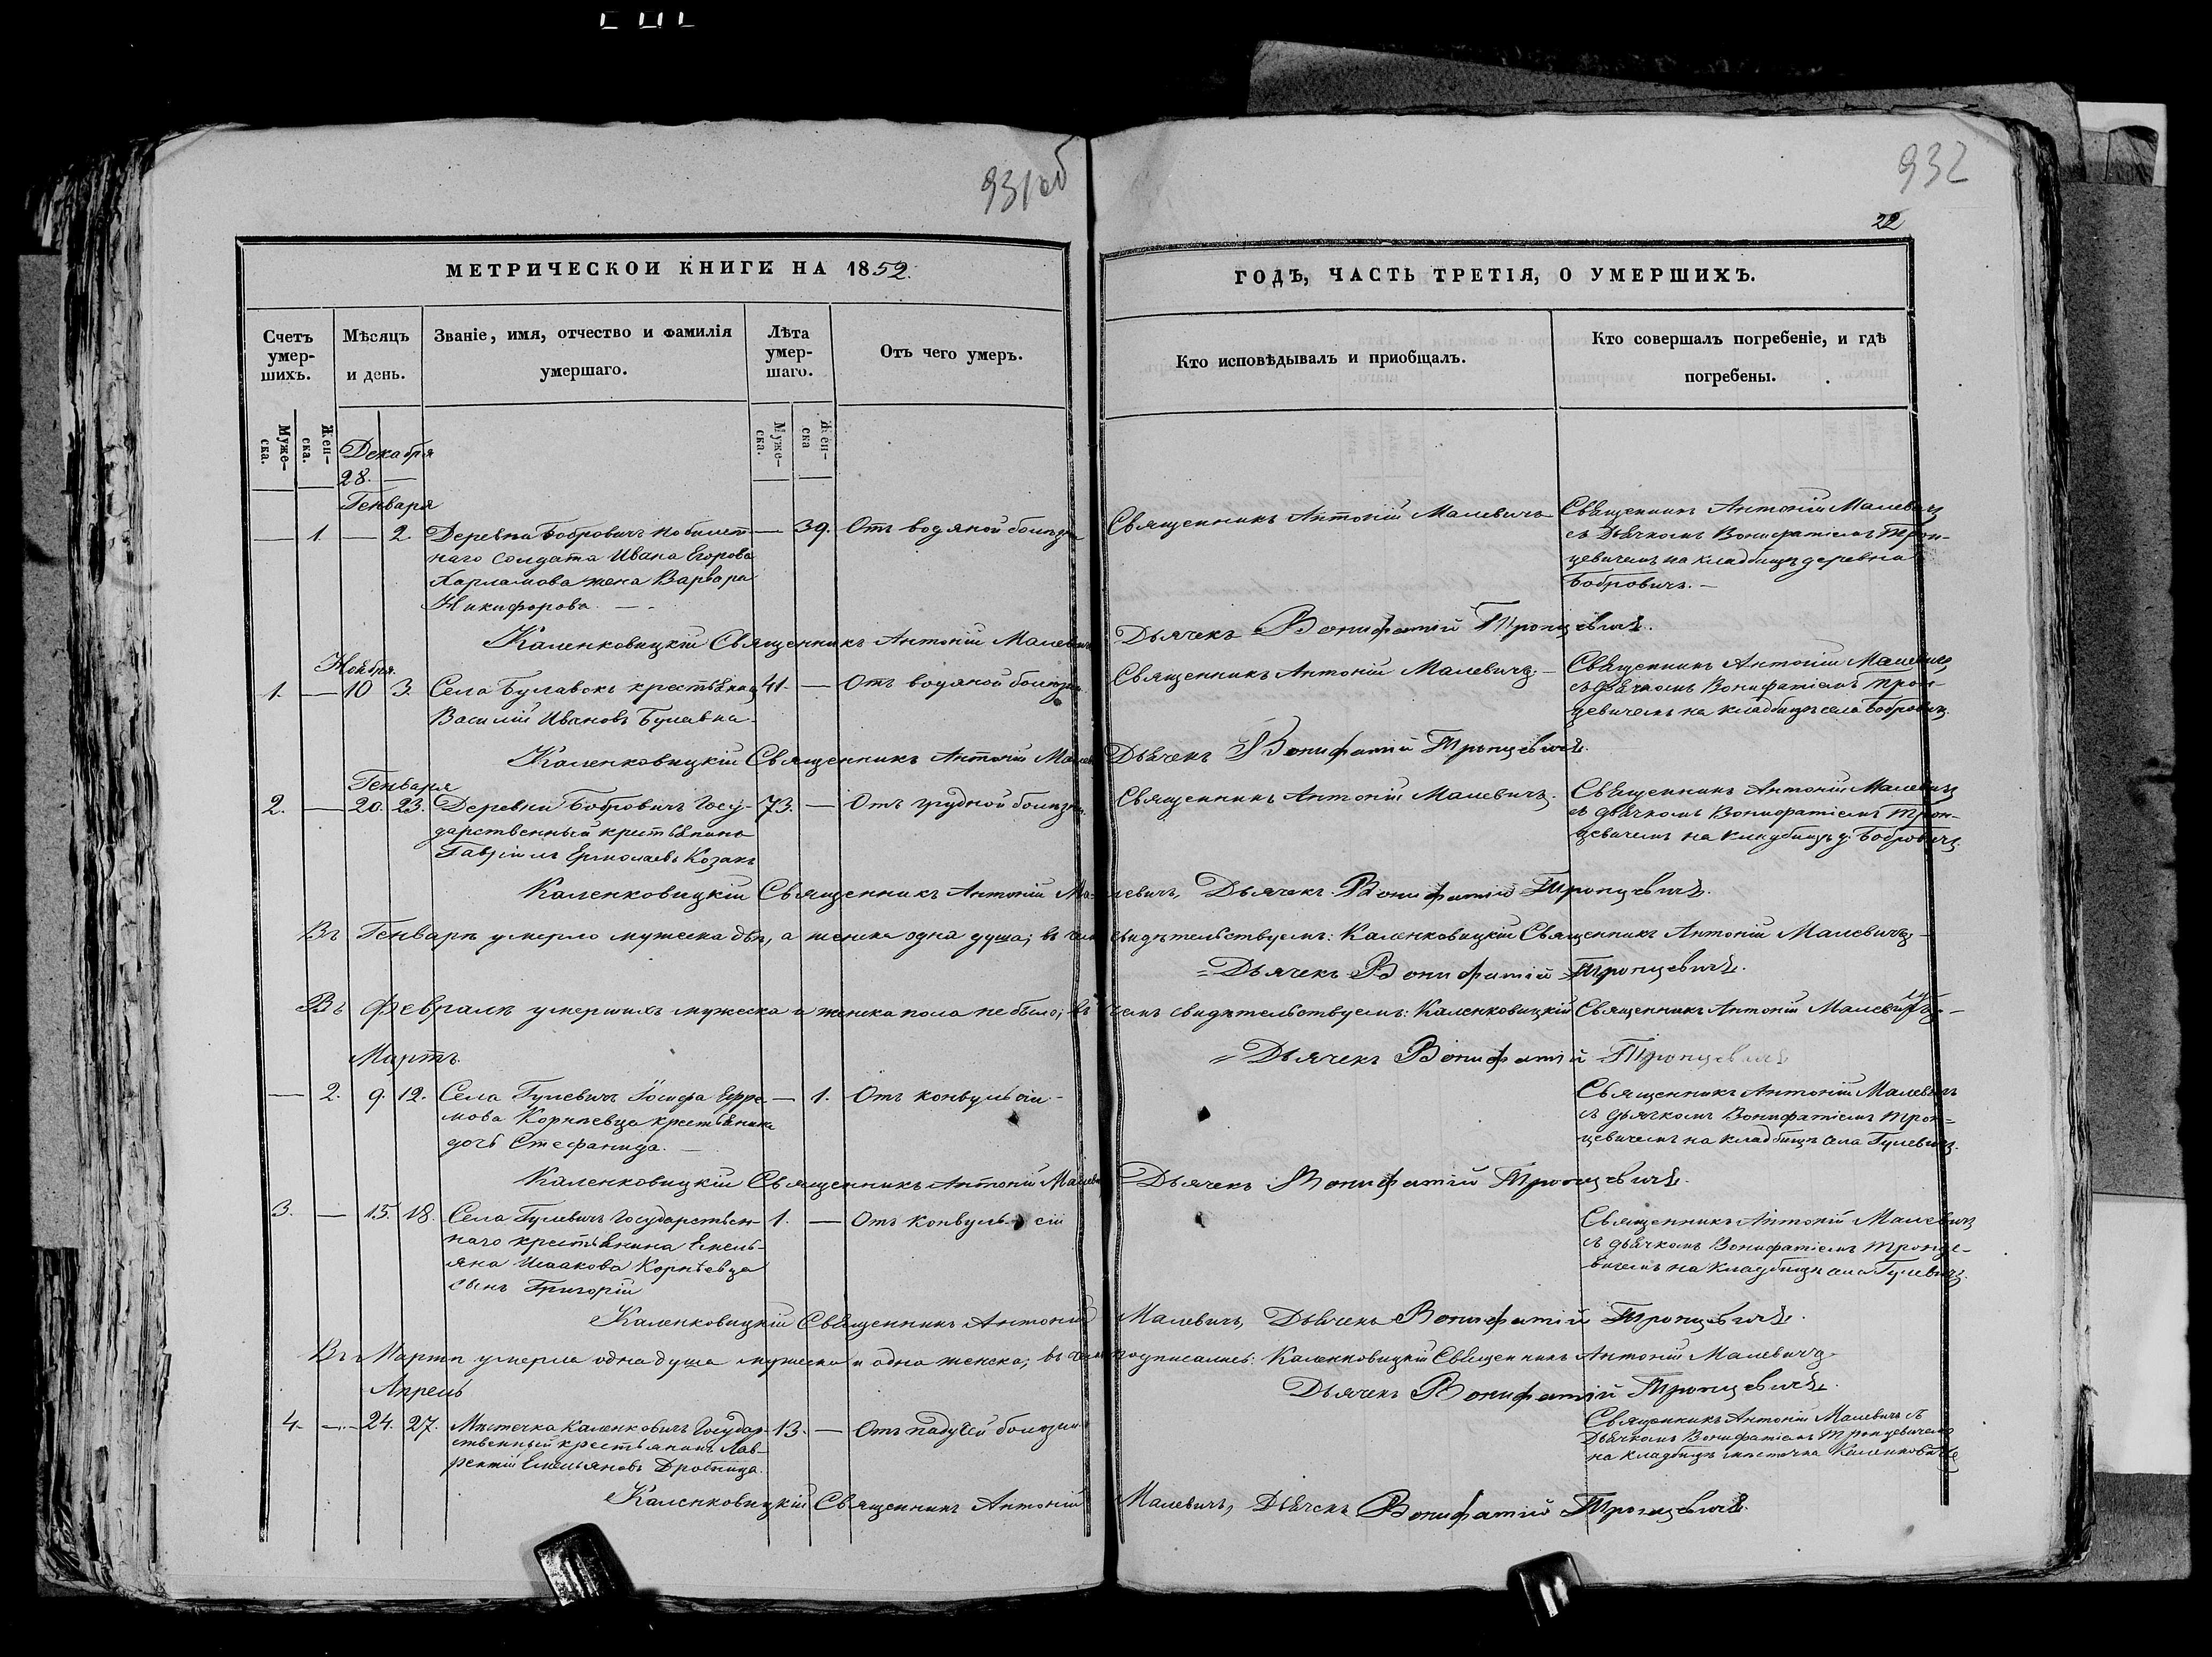 931об
932
22
МЕТРИЧЕСКОЙ КНИГИ НА 1852.
ГОДЪ, ЧАСТЬ ТРЕТІЯ, О УМЕРШИХЪ.
Счетъ умер-
шихъ.
Мѣсяцъ
и день.
Званіе, имя, отчество и фамилія
умершаго.
Лѣта
умер-
шаго.
Отъ чего умеръ.
Кто исповѣдывалъ и приобщалъ.
Кто совершалъ погребеніе, и гдѣ
погребены.
Муже-
ска.
Жен-
ска.
Муже-
ска.
Жен-
ска
Декабря
28. —
Генваря
— 1. — 2. Деревни Бобровичъ побилет- — 39. Отъ водяной болѣзни
наго солдата Ивана Егорова
Харламова жена Варвара
Никифорова. —
Священникъ Антоній Малевичъ
Священникъ Антоній Малевичъ
съ Дьячкомъ Вонифатіемъ Трон-
цевичемъ на кладбищѣ деревни
Бобровичъ. —
Каленковицкій Священникъ Антоній Малевичъ Дьячекъ Вонифатій Тронцевичъ.
Ноября
1. — 10 3. Села Булавокъ крестьянинъ 41. — Отъ водяной болѣзни
Василій Ивановъ Булавка.
Священникъ Антоній Малевичъ. —
Священникъ Антоній Малевичъ
съ дьячкомъ Вонифатіемъ Трон-
цевичемъ на кладбищѣ села Бобровичъ.
Каленковицкій Священникъ Антоній Малев Дьячекъ Вонифатій Тронцевичъ.
Генваря
2. — 20. 23. Деревни Бобровичъ Госу- 73. — Отъ грудной болѣзни
дарственный крестьянинъ
Гавріилъ Ермолаевъ Козакъ
Священникъ Антоній Малевичъ.
Священникъ Антоній Малевичъ
съ дьячкомъ Вонифатіемъ Трон-
цевичемъ на кладбищѣ д. Бобровичъ.
Каленковицкій Священникъ Антоній Ма- левичъ, Дьячекъ Вонифатій Тронцевичъ.
Въ Генварѣ умерло мужеска двѣ, а женска одна душа; въ чемъ свидѣтельствуемъ: Каленковицкій Священникъ Антоній Малевичъ, —
= Дьячекъ Вонифатій Тронцевичъ.
Въ Февралѣ умершихъ мужеска и женска пола не было; въ чемъ свидѣтельствуемъ: Каленковицкій Священникъ Антоній Малевичъ —
= Дьячекъ Вонифатій Тронцевичъ
Мартъ
— 2. 9. 12. Села Гулевичъ Іосифа Ефре- — 1. Отъ конвульсіи
мова Корнѣевца крестьянина
дочь Стефанида. —
Священникъ Антоній Малевичъ
съ дьячкомъ Вонифатіемъ Трон-
цевичемъ на кладбищѣ села Гулевичъ.
Каленковицкій Священникъ Антоній Малеви Дьячекъ Вонифатій Тронцевичъ.
3. — 15. 18. Села Гулевичъ Государствен- 1. — Отъ конвульсіи
наго крестьянина Емель-
яна Исаакова Корнѣевца
сынъ Григорій
Священникъ Антоній Малевичъ
съ дьячкомъ Вонифатіемъ Тронце-
вичемъ на кладбищѣ села Гулевичъ.
Каленковицкій Священникъ Антоній Малевичъ, Дьячекъ Вонифатій Тронцевичъ.
Въ Мартѣ умерла одна душа мужеска и одна женска; въ чемъ подписались: Каленковицкій Священникъ Антоній Малевичъ
Дьячекъ Вонифатій Тронцевичъ.
Апрель
4. — 24. 27. Мѣстечка Каленковичъ Государ- 13. — Отъ падучей болѣзни
ственный крестьянинъ Лав-
рентій Емельяновъ Дробница.
Священникъ Антоній Малевичъ съ
Дьячкомъ Вонифатіемъ Тронцевичемъ
на кладбищѣ мѣстечка Каленковичъ
Каленковицкій Священникъ Антоній Малевичъ, Дьячекъ Вонифатій Тронцевичъ.